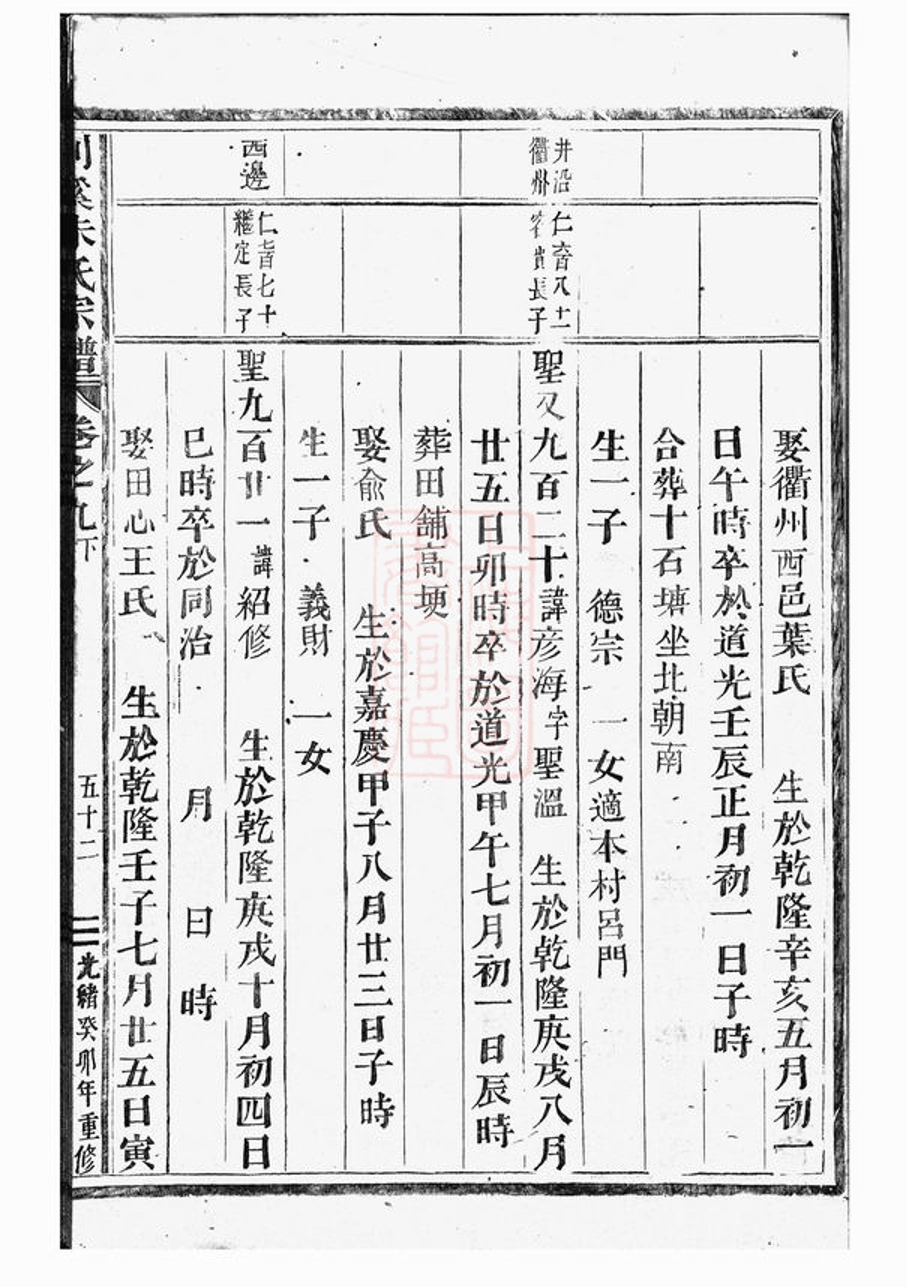 娶衢州西邑葉氏　生於乾隆辛亥五月初一
日午時卒於道光壬辰正月初一日子時
合葬十石塘坐北朝南
生一子　德宗　一女適本村呂門
井沿
衢州
八十二
長子
聖又九百二十諱彦海字聖溫　生於乾隆庚戌八月
廿五日卯時卒於道光甲午七月初一日辰時
葬田舖高埂
娶俞氏　生於嘉慶甲子八月廿三日子時
生一子　義財　一女
西邊
七十
繼定長子
聖九百廿一諱紹修　生於乾隆庚戌十月初四日
巳時卒於同治　月　日　時
娶田心王氏　生於乾隆壬子七月廿五日寅
朱氏宗譜　卷之九下　五十二　光緒癸卯年重修